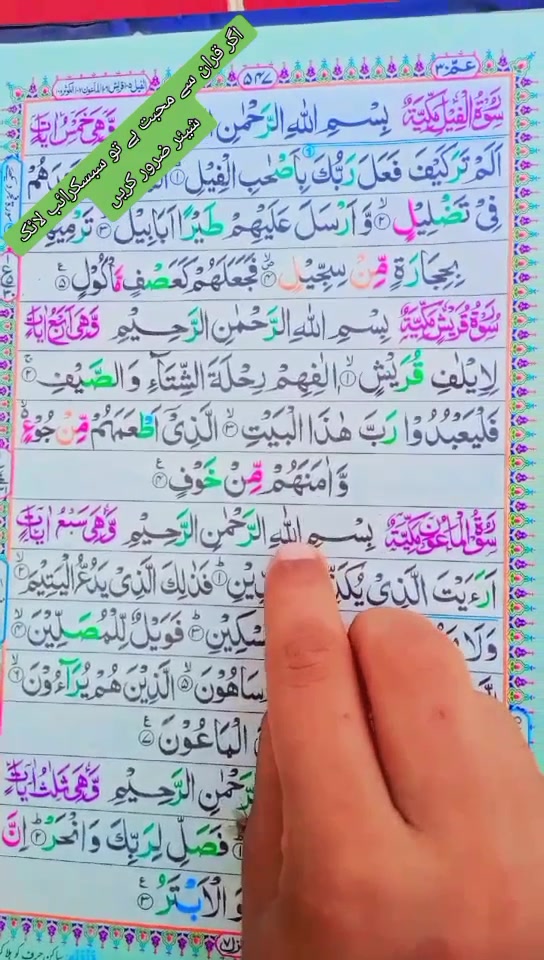 اگر قران سے محبت ہے تو سبسکرائب لائک
شیئر ضرور کریں
عمّ ۳۰
۵۴۷
سُوْرَةُ الْفِيْلِ مَكِّيَّةٌ بِسْمِ اللهِ الرَّحْمٰنِ وَّهِىَ خَمْسُ اٰيَاتٍ
اَلَمْ تَرَ كَيْفَ فَعَلَ رَبُّكَ بِاَصْحٰبِ الْفِيْلِ ۱
فِيْ تَضْلِيْلٍ ۲ وَّاَرْسَلَ عَلَيْهِمْ طَيْرًا اَبَابِيْلَ ۳ تَرْمِيْهِمْ
بِحِجَارَةٍ مِّنْ سِجِّيْلٍ ۴ فَجَعَلَهُمْ كَعَصْفٍ مَّاْكُوْلٍ ۵
سُوْرَةُ قُرَيْشٍ مَكِّيَّةٌ بِسْمِ اللهِ الرَّحْمٰنِ الرَّحِيْمِ وَّهِىَ اَرْبَعُ اٰيَاتٍ
لِاِيْلٰفِ قُرَيْشٍ ۱ اٖلٰفِهِمْ رِحْلَةَ الشِّتَآءِ وَالصَّيْفِ ۲
فَلْيَعْبُدُوْا رَبَّ هٰذَا الْبَيْتِ ۳ الَّذِيْٓ اَطْعَمَهُمْ مِّنْ جُوْعٍ
وَّاٰمَنَهُمْ مِّنْ خَوْفٍ ۴
سُوْرَةُ الْمَاعُوْنِ مَكِّيَّةٌ بِسْمِ اللهِ الرَّحْمٰنِ الرَّحِيْمِ وَّهِىَ سَبْعُ اٰيَاتٍ
اَرَءَيْتَ الَّذِيْ فَذٰلِكَ الَّذِيْ يَدُعُّ الْيَتِيْمَ ۲
وَلَا فَوَيْلٌ لِّلْمُصَلِّيْنَ ۴
سَاهُوْنَ ۵ الَّذِيْنَ هُمْ يُرَآءُوْنَ ۶
الْمَاعُوْنَ ۷
الرَّحِيْمِ وَّهِىَ ثَلٰثُ اٰيَاتٍ
فَصَلِّ لِرَبِّكَ وَانْحَرْ ۲ اِنَّ
الْاَبْتَرُ ۳